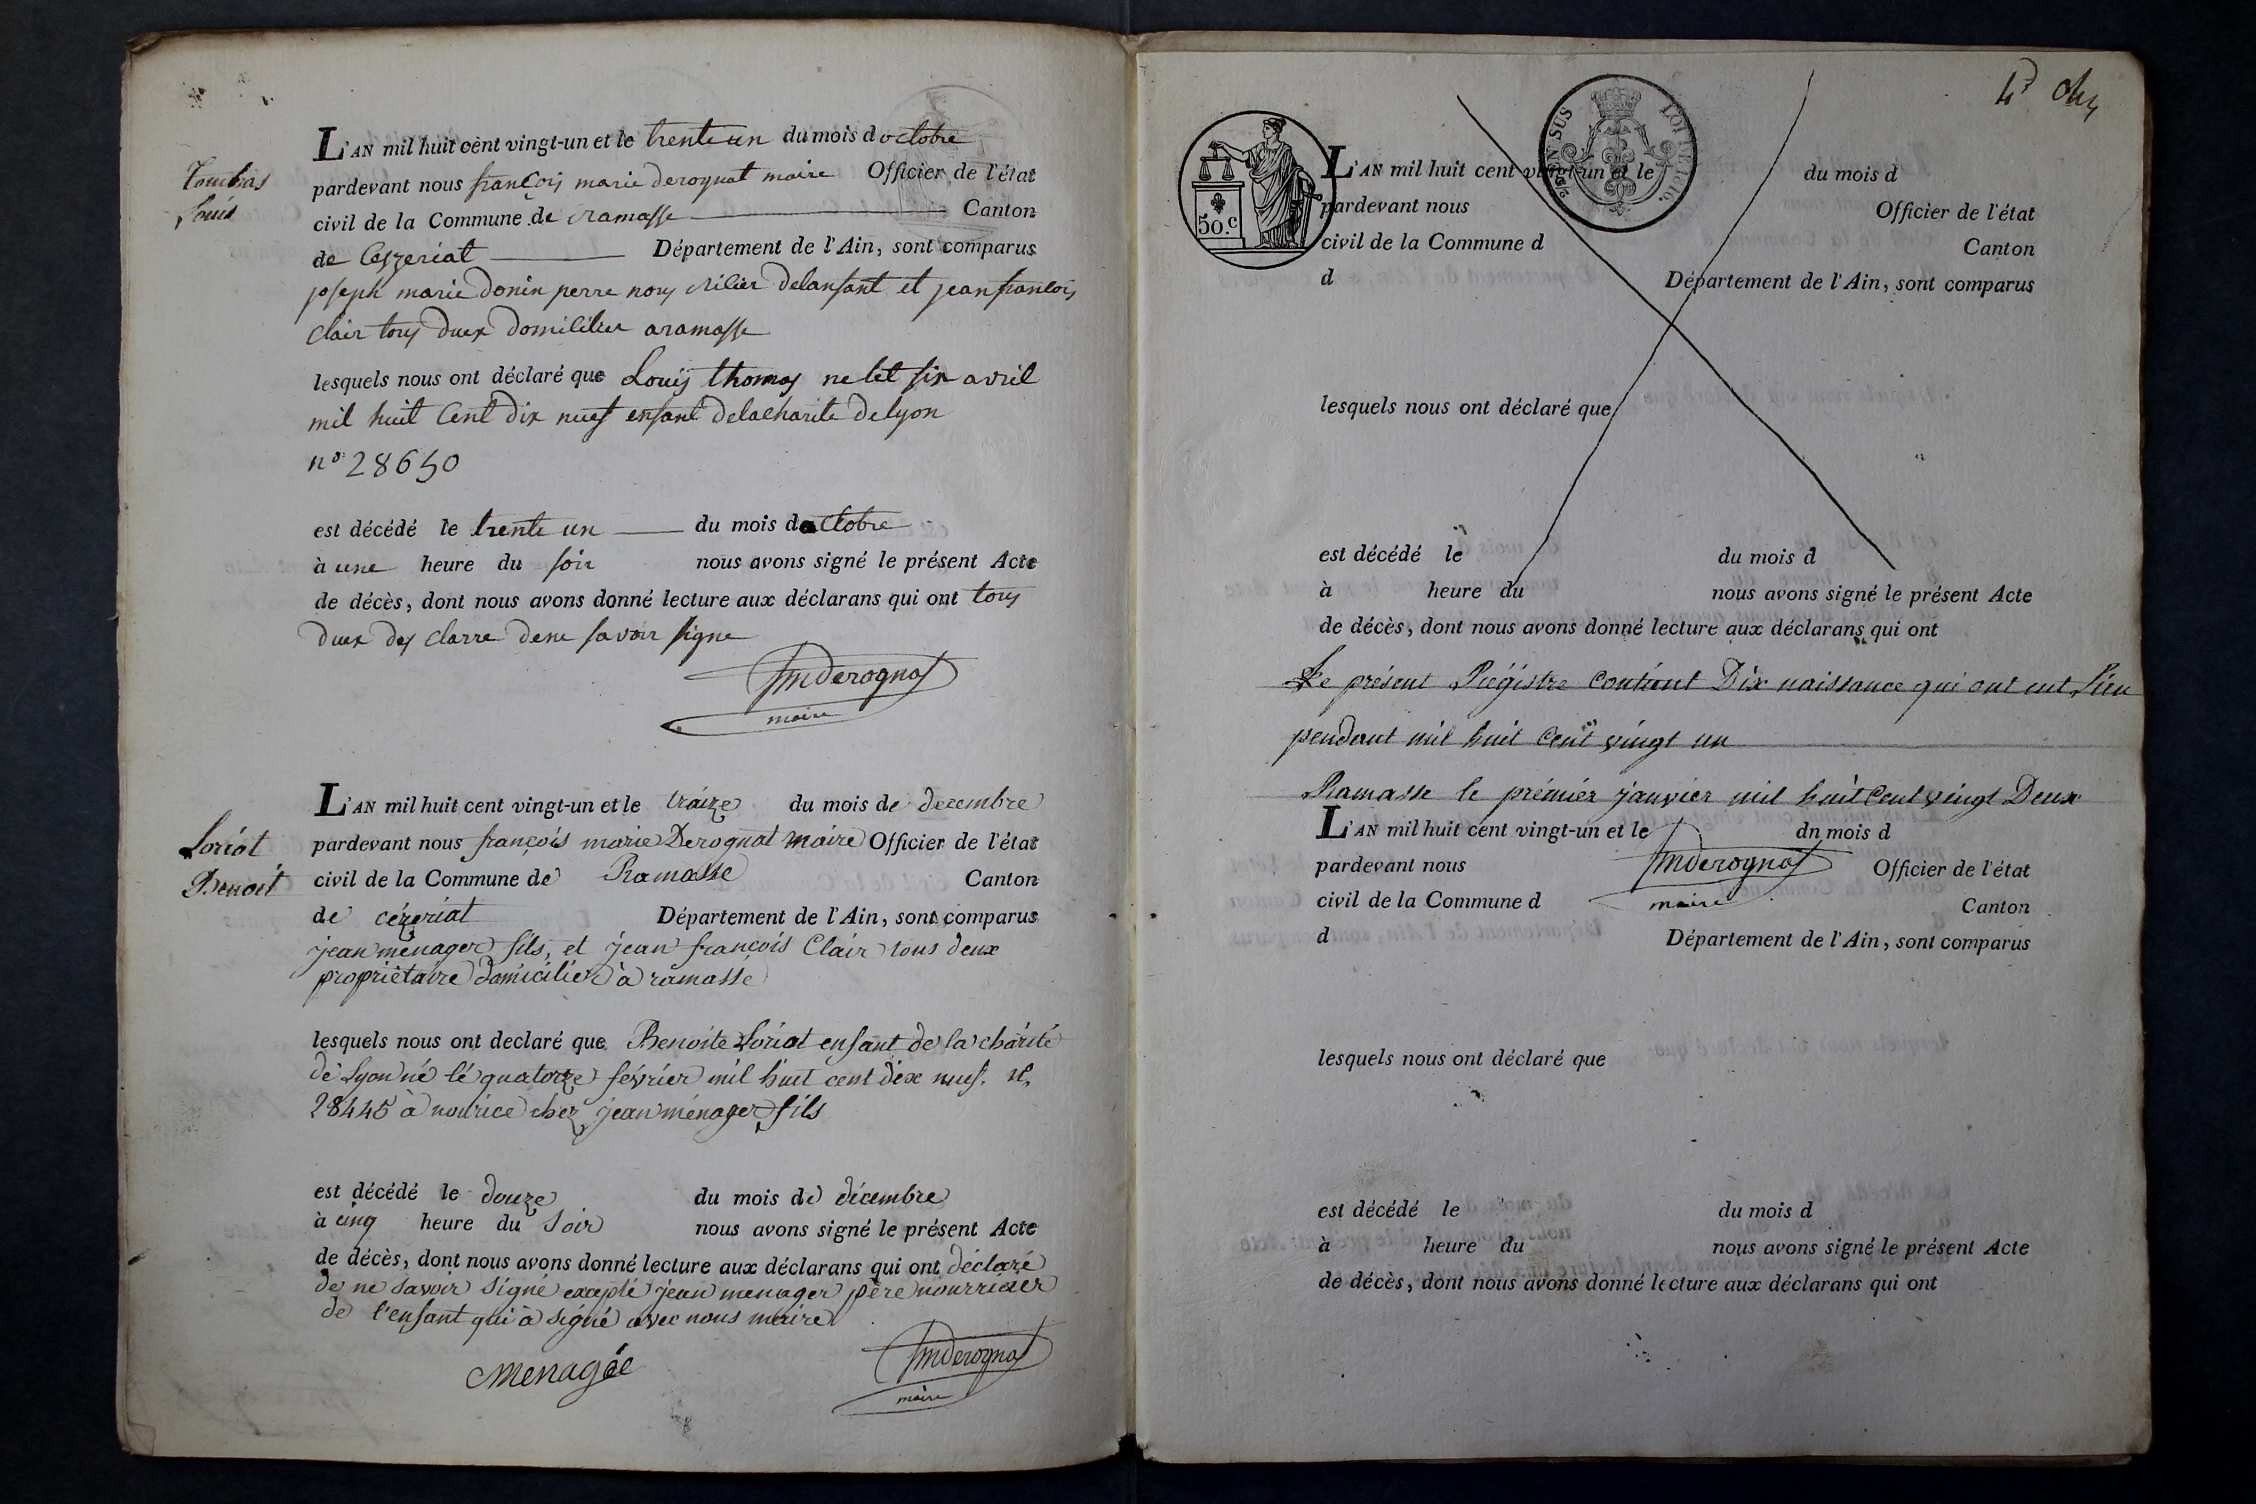 Louis
L'AN mil huit cent vingt-un et le trente un du mois d octobre
pardevant nous françois marie derognat maire Officier de l'état
civil de la Commune de ramasse Canton
de Ceyzeriat Département de l'Ain, sont comparus
joseph marie donin perre delanfant et jean francois
clair tous duex domicilier aramasse
lesquels nous ont déclaré que Louis thomas ne let six avril
mil huit Cent dix neuf enfant delacharite delyon
n° 28650
est décédé le trente un du mois doctobre
à une heure du soir nous avons signé le présent Acte
de décès, dont nous avons donné lecture aux déclarans qui ont tous
duex des clarre dene savoir signe
fmderognat
maire
Loriot
Benoit
L'AN mil huit cent vingt-un et le traize du mois de decembre
pardevant nous françois marie Derognat maire Officier de l'état
civil de la Commune de Ramasse Canton
de cézeriat Département de l'Ain, sont comparus
jean ménager fils, et jean françois Clair tous deux
propriétaire domicilier à ramasse
lesquels nous ont declaré que Benoite Loriot enfant de la charité
de Lyon né lé quatorze février mil huit cent dix neuf. n°
28445 à nourice chez jean ménager fils
est décédé le douze du mois de décembre
à cinq heure du Soir nous avons signé le présent Acte
de décès, dont nous avons donné lecture aux déclarans qui ont déclaré
de ne savoir signé excepté jean menager père nourricier
de l'enfant qui à signé avec nous maire
menagée
fmderognat
maire
4e
50.c
L'AN mil huit cent vingt-un et le du mois d
pardevant nous Officier de l'état
civil de la Commune d Canton
d Département de l'Ain, sont comparus
lesquels nous ont déclaré que
est décédé le du mois d
à heure du nous avons signé le présent Acte
de décès, dont nous avons donné lecture aux déclarans qui ont
Le présent Régistre contient Dix naissance qui ont eut Lieu
pendant mil huit cent vingt un
Ramasse le prémiér janvier mil huit Cent vingt Deux
L'AN mil huit cent vingt-un et le dn mois d
pardevant nous fmderognat Officier de l'état
civil de la Commune d maire Canton
d Département de l'Ain, sont comparus
lesquels nous ont déclaré que
est décédé le du mois d
à heure du nous avons signé le présent Acte
de décès, dont nous avons donné lecture aux déclarans qui ont